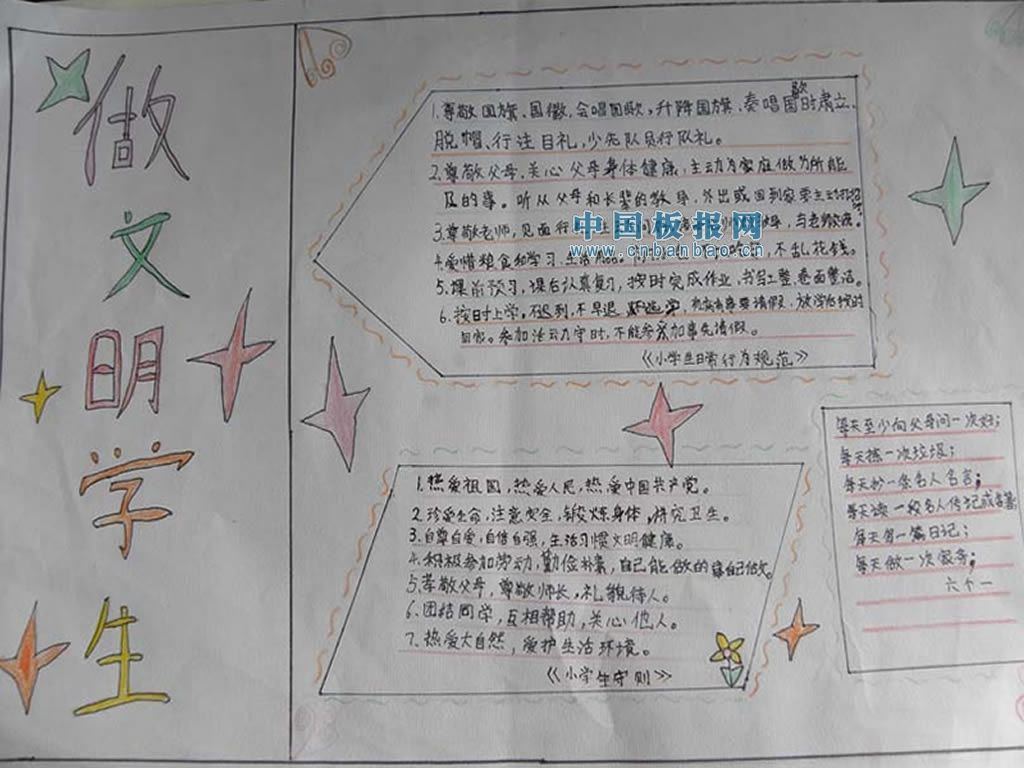 做文明学生
1.尊敬国旗、国徽,会唱国歌,升降国旗、奏唱国歌时肃立、
脱帽、行注目礼,少先队员行队礼。
2.尊敬父母,关心父母身体健康,主动为家庭做力所能
及的事。听从父母和长辈的教导,外出或回到家要主动打招
3.尊敬老师,见面行
中国板报网
www.cnbanbao.cn
4.爱惜粮食和学习、生活用品。不乱花钱。
5.课前预习,课后认真复习,按时完成作业,书写工整卷面整洁。
6.按时上学,不迟到,不早退,不逃学,有病有事要请假,放学后按时
回家。参加活动守时,不能参加事先请假。
《小学生日常行为规范》
1.热爱祖国,热爱人民,热爱中国共产党。
2.珍爱生命,注意安全,锻炼身体,讲究卫生。
3.自尊自爱,自信自强,生活习惯文明健康。
4.积极参加劳动,勤俭朴素,自己能做的事自己做。
5.孝敬父母,尊敬师长,礼貌待人。
6.团结同学,互相帮助,关心他人。
7.热爱大自然,爱护生活环境。
《小学生守则》
每天至少向父母问一次好;
每天拣一次垃圾;
每天抄一条名人名言;
每天读一段名人传记或
每天写一篇日记;
每天做一次家务;
六个一